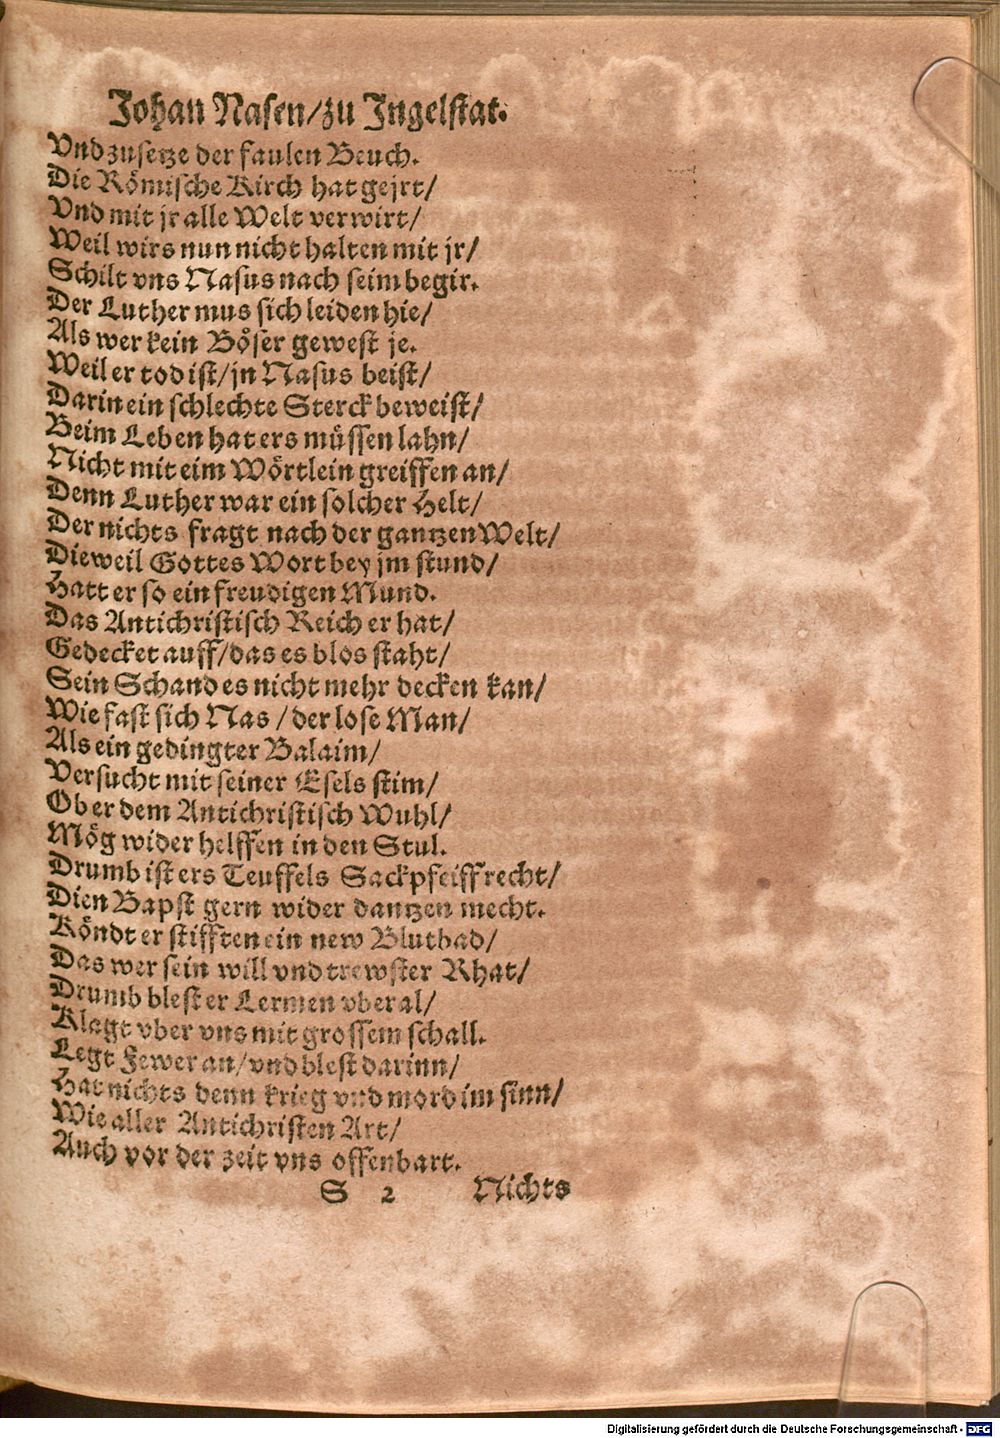 Johan Nasen/zu Ingelstat.
Vnd zusetze der faulen Beuch.
Die Römische Kirch hat gejrt/
Vnd mit jr alle Welt verwirt/
Weil wirs nun nicht halten mit jr/
Schilt vns Nasus nach seim begir.
Der Luther mus sich leiden hie/
Als wer kein Böser gewest je.
Weil er tod ist/jn Nasus beist/
Darin ein schlechte Sterck beweist/
Beim Leben hat ers müssen lahn/
Nicht mit eim Wörtlein greiffen an/
Denn Luther war ein solcher Helt/
Der nichts fragt nach der gantzen Welt/
Dieweil Gottes Wort bey jm stund/
Hatt er so ein freudigen Mund.
Das Antichristisch Reich er hat/
Gedecket auff/das es blos staht/
Sein Schand es nicht mehr decken kan/
Wie fast sich Nas/der lose Man/
Als ein gedingter Balaim/
Versucht mit seiner Esels stim/
Ob er dem Antichristisch Wuhl/
Mög wider helffen in den Stul.
Drumb ist ers Teuffels Sackpfeiff recht/
Dien Bapst gern wider dantzen mecht.
Köndt er stifften ein new Blutbad/
Das wer sein will vnd trewster Rhat/
Drumb blest er Lermen vberal/
Klagt vber vns mit grossem schall.
Legt Fewer an/vnd blest darinn/
Hat nichts denn krieg vnd mord im sinn/
Wie aller Antichristen Art/
Auch vor der zeit vns offenbart.
S 2 Nichts
Digitalisierung gefördert durch die Deutsche Forschungsgemeinschaft - DFG